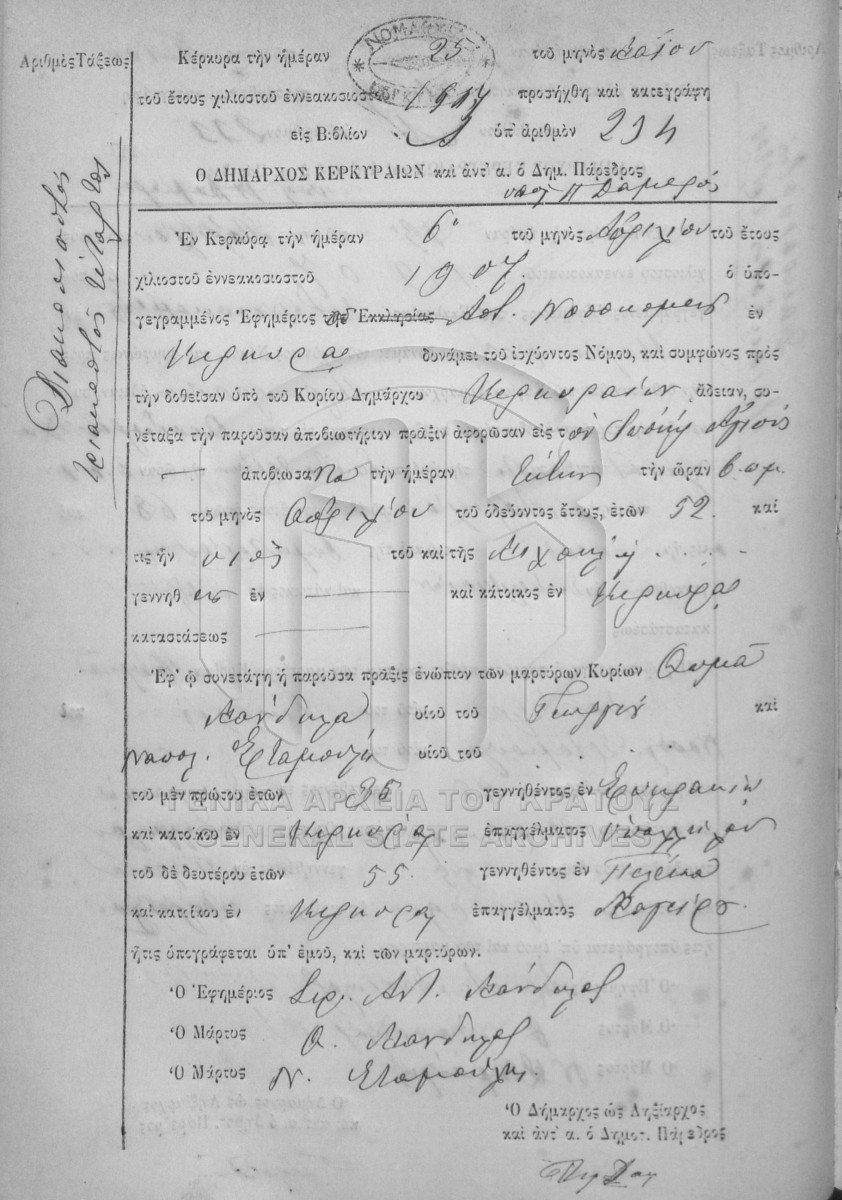 Ἀριθμὸς Τάξεως
Διακόσιοστὸς
τριακοστὸς τέταρτος
Κέρκυρα τὴν ἡμέραν 25 τοῦ μηνὸς Μαΐου
τοῦ ἔτους χιλιοστοῦ ἐννεακοσιοστοῦ 1907 προσήχθη καὶ κατεγράφη
εἰς Βιβλίον ὑπ' ἀριθμὸν 234
Ὁ ΔΗΜΑΡΧΟΣ ΚΕΡΚΥΡΑΙΩΝ καὶ ἀντ' α. ὁ Δημ. Πάρεδρος
Ἐν Κερκύρᾳ τὴν ἡμέραν 6 τοῦ μηνὸς Ἀπριλίου τοῦ ἔτους
χιλιοστοῦ ἐννεακοσιοστοῦ 1907. ὁ ὑπο-
γεγραμμένος Ἐφημέριος Ἐκκλησίας Νοσοκομείου ἐν
Κερκύρας δυνάμει τοῦ ἰσχύοντος Νόμου, καὶ συμφώνως πρὸς
τὴν δοθεῖσαν ὑπὸ τοῦ Κυρίου Δημάρχου Κερκυραίων ἄδειαν, συ-
νέταξα τὴν παροῦσαν ἀποβιωτήριον πρᾶξιν ἀφορῶσαν εἰς τὸν
ἀποβιώσαντα τὴν ἡμέραν Ἕκτην τὴν ὥραν 6 π.μ.
τοῦ μηνὸς Ἀπριλίου τοῦ ὁδεύοντος ἔτους, ἐτῶν 52 καὶ
τις ἦν υἱὸς τοῦ καὶ τῆς Μιχαὴλ . . . .
γεννηθεὶς ἐν καὶ κάτοικος ἐν Κερκύρας
καταστάσεως
Ἐφ' ᾧ συνετάγη ἡ παροῦσα πρᾶξις ἐνώπιον τῶν μαρτύρων Κυρίων Θωμᾶ
Μάνδυλα υἱοῦ τοῦ Γεωργίου καὶ
Ναπολ. Σταμούλη υἱοῦ τοῦ . . . .
τοῦ μὲν πρώτου ἐτῶν 35 γεννηθέντος ἐν
καὶ κατοίκου ἐν Κερκύρᾳ ἐπαγγέλματος ὑπαλλήλου
τοῦ δὲ δευτέρου ἐτῶν 55. γεννηθέντος ἐν Πέλεκα
καὶ κατοίκου ἐν Κερκύρᾳ ἐπαγγέλματος Μαγείρου
ἥτις ὑπογράφεται ὑπ' ἐμοῦ, καὶ τῶν μαρτύρων.
Ὁ Ἐφημέριος Ἱερ. Ἀντ. Μάνδυλας
Ὁ Μάρτυς Θ. Μάνδυλας
Ὁ Μάρτυς Ν. Σταμούλης
Ὁ Δήμαρχος ὡς Ληξίαρχος
καὶ ἀντ' α. ὁ Δημοτ. Πάρεδρος
ΓΕΝΙΚΑ ΑΡΧΕΙΑ ΤΟΥ ΚΡΑΤΟΥΣ
GENERAL STATE ARCHIVES